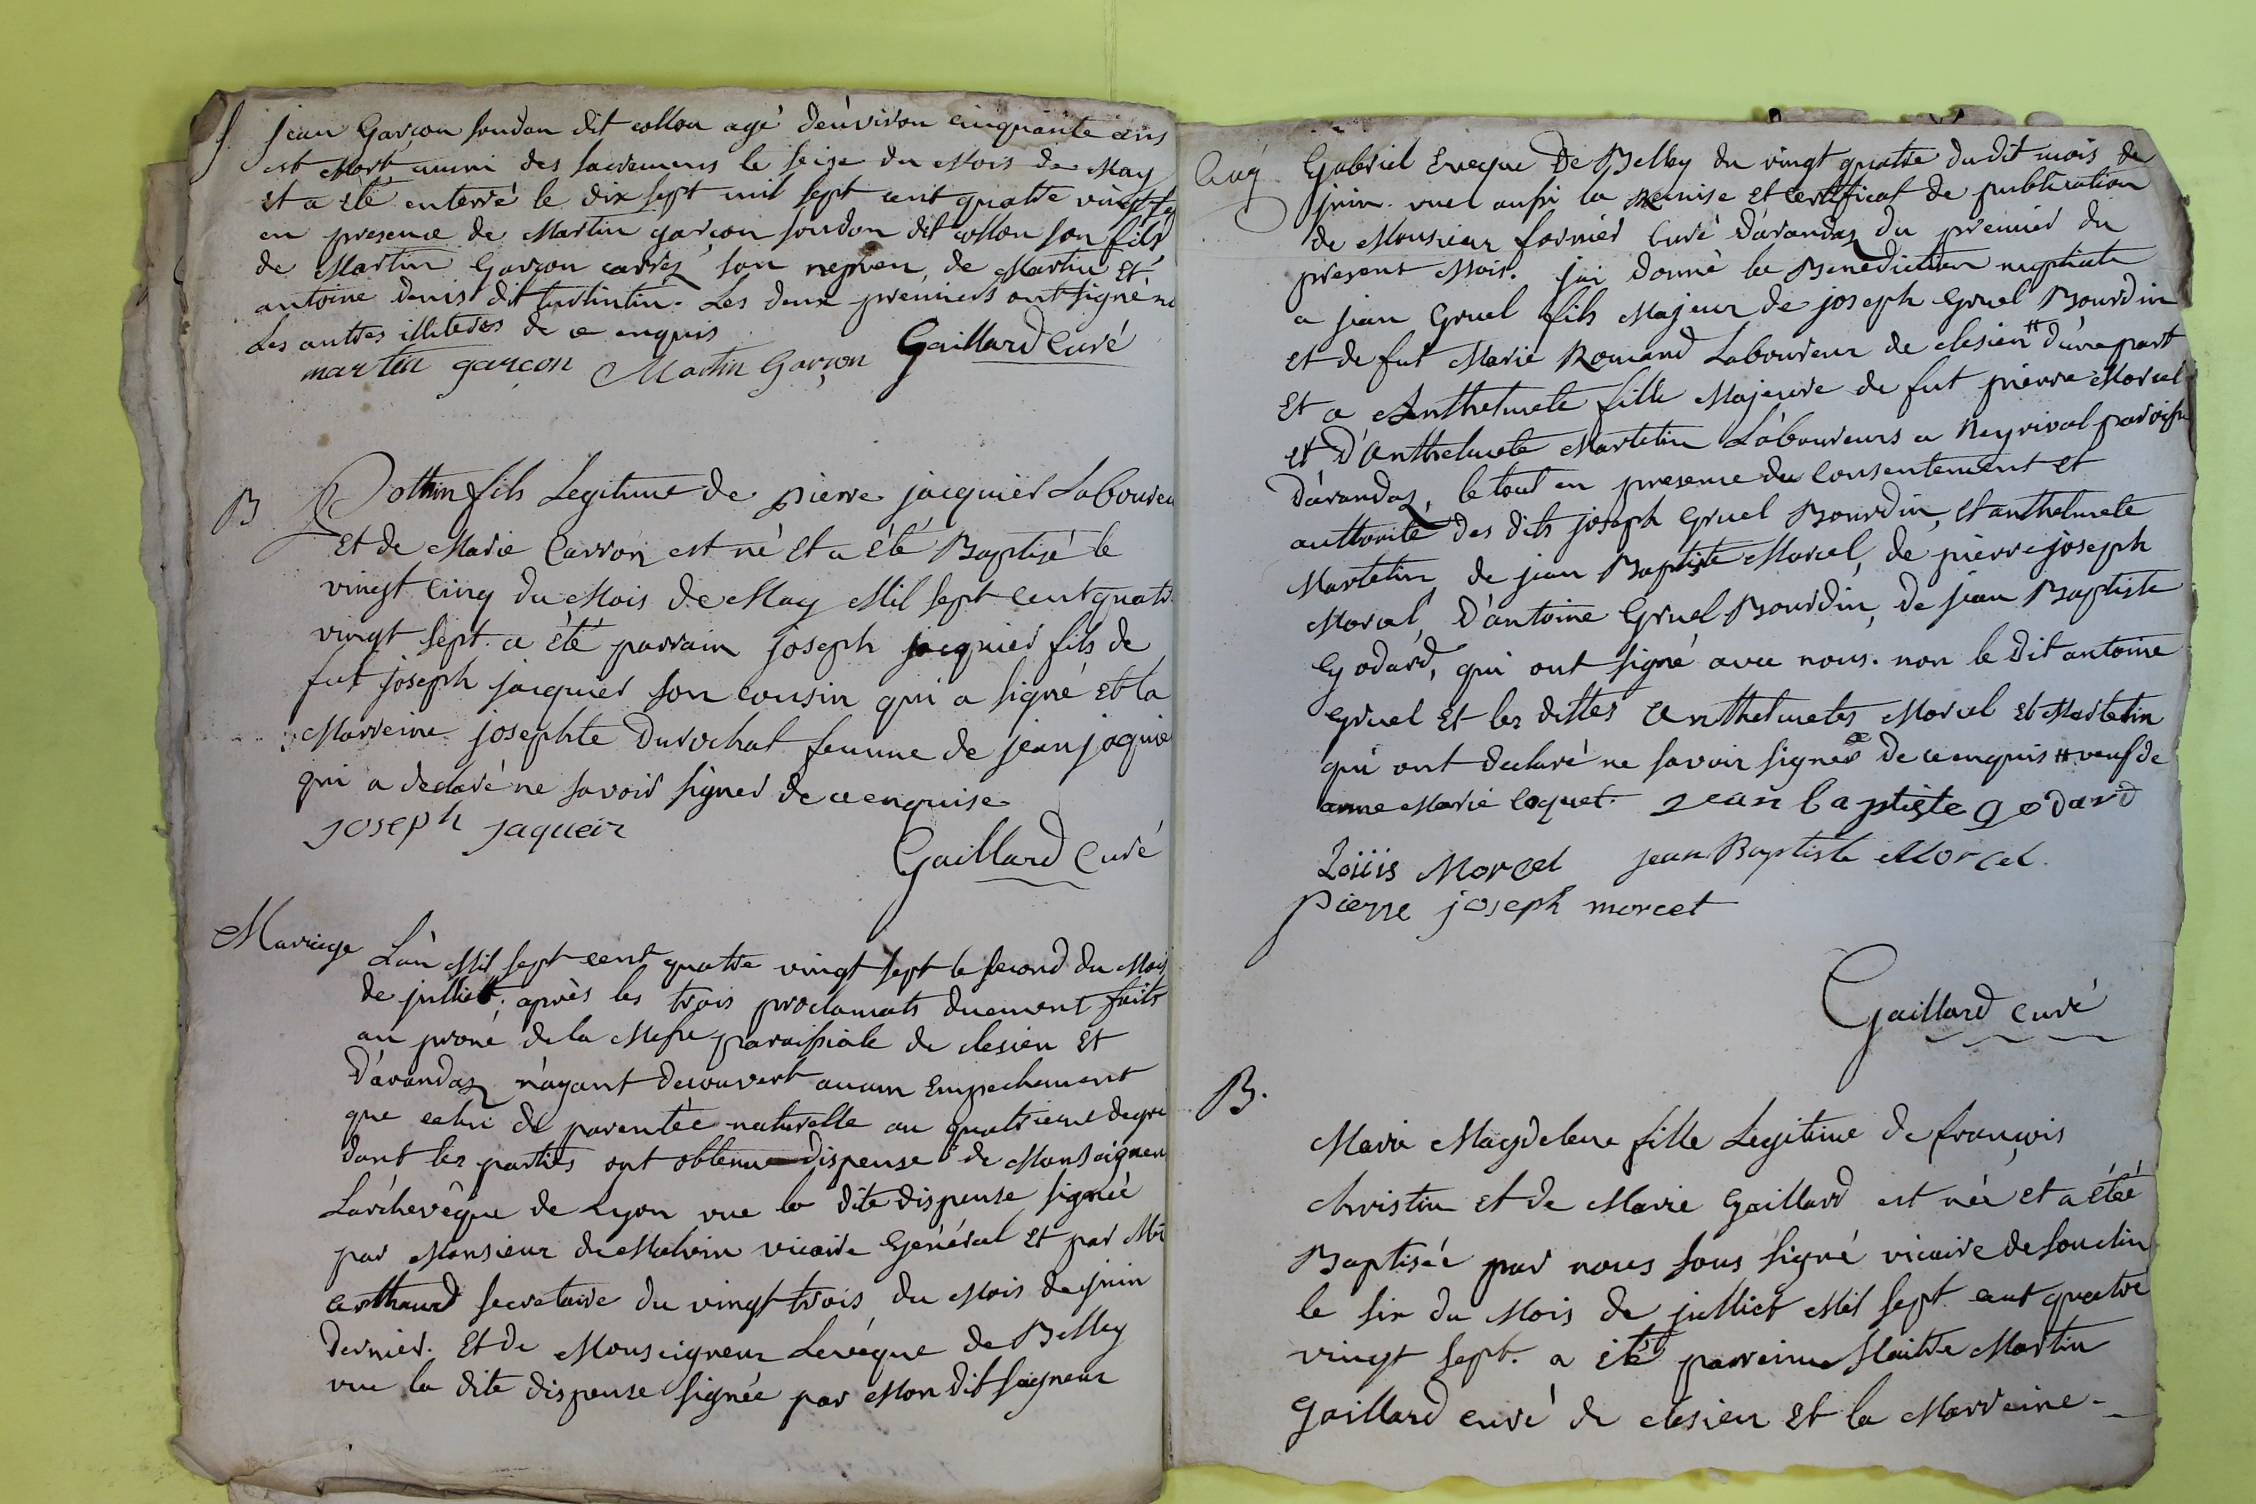 S. Jean Garçon Soudan dit collon agé denviron cinquante ans
est Mort muni des sacremens le seise du Mois de May
et a été enterré le dix sept mil sept cent quatre vingt
en presence de Martin garçon soudon dit collon son fils
de Martin Garçon carrez son neveu, de Martin et
antoine denis dit tintintin. Les deux premiers ont signé
Les autres illiterés de ce enquis
martin garcon Martin Garçon Gaillard Curé
B Pothin fils Legitime de pierre jacquier Laboureu
et de Marie Carron est né et a été Baptisé le
vingt Cinq du Mois de May Mil sept Cent quatre
vingt sept. a été parrain joseph jacquier fils de
fut joseph jacquier son cousin qui a signé et la
Marreine josephte Durochat femme de jean jaquie
qui a declaré ne savoir signer de ce enquise
joseph jaqueir
Gaillard Curé
Mariage L'an Mil sept cent quatre vingt sept le second du Mois
de julliet; après les trois proclamats duement faits
au proné de la Messe paroissiale de clesieu et
D'arandaz n'ayant decouvert aucun Empechement
que celui de parentée naturelle au quatrieme degre
dont les parties ont obtenu dispense de Monseigneu
L'archevêque de Lyon vue la dite dispense signée
par Monsieur de Malvin vicaire Général et par Mr
arthaud secretaire du vingt trois du Mois de juin
dernier. Et de Monseigneur Levêque de Belley
vue la dite dispense signée par Mon dit seigneur
Gabriel Eveque De Belley du vingt quatre dudit mois de
juin. vuel aussi la Remise et certificat de publication
de Monsieur fornier Curé D'arandaz du premier du
present Mois. jai donné la Benediction nuptiale
a jean Gruel fils Majeur de joseph Gruel Bourdin
et de fut Marie Romand Laboureur de clesieu # d'une part
Et a Anthelmete fille Majeure de fut pierre Morcel
et D'Anthelmete Martelin Laboureurs a Neyrival paroisse
D'arandaz, le tout en presence du Consentement et
authorité des dits joseph Gruel Bourdin, et anthelmete
Martelin, de jean Baptiste Morcel, de pierre joseph
Morcel, D'antoine Gruel Bourdin, De jean Baptiste
Godard, qui ont signé avec nous. non le dit antoine
Gruel et les dittes Anthelmetes Morcel et Martelin
qui ont declaré ne savoir signer de ce enquis # veuf de
anne Marie Coquet. jean baptiste godard
Loüis Morcel jean Baptiste Morcel.
pierre joseph morcel
Gaillard curé
B.
Marie Magdelene fille Légitime de françois
christin et de Marie Gaillard est née et a étéé
Baptisée par nous sous signé vicaire de souclin
le six du Mois de julliet Mil sept cent quatre
vingt sept. a été parreine Maitre Martin
Gaillard curé de clesieu et la Marreine -